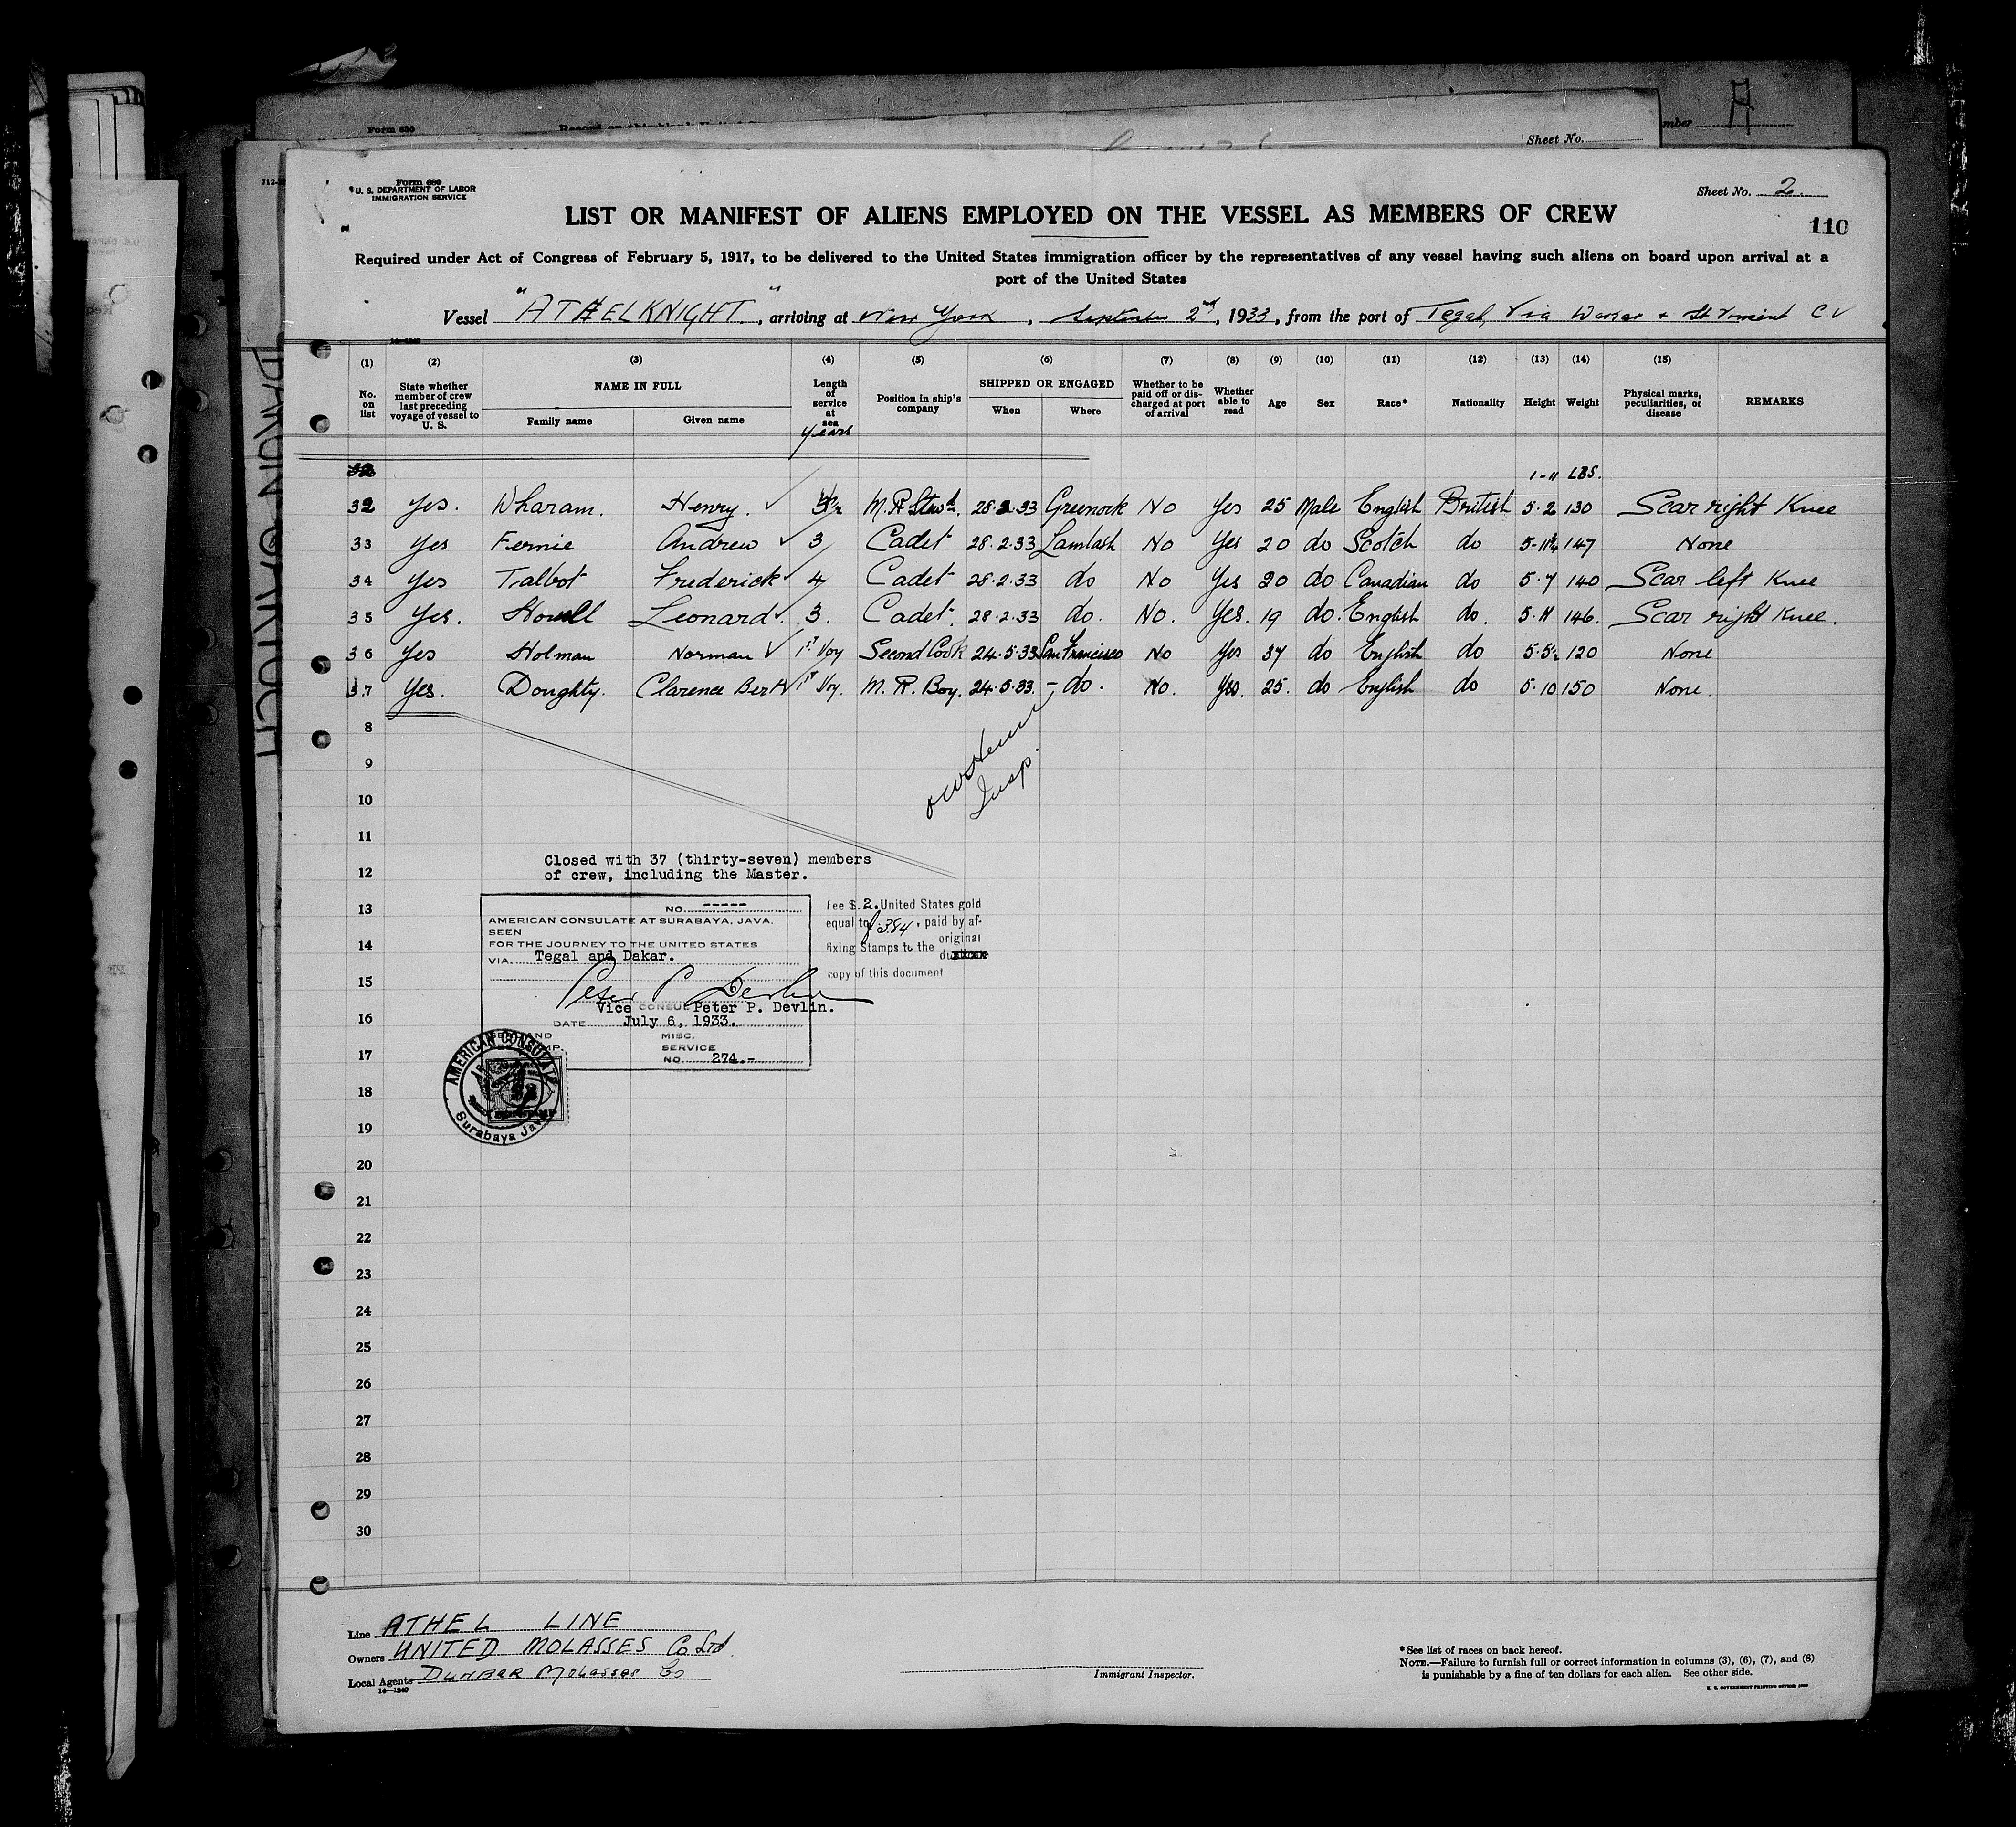 Form 630
Sheet No.
mber A
712-
Form 680
U. S. DEPARTMENT OF LABOR
IMMIGRATION SERVICE
Sheet No. 2
110
LIST OR MANIFEST OF ALIENS EMPLOYED ON THE VESSEL AS MEMBERS OF CREW
Required under Act of Congress of February 5, 1917, to be delivered to the United States immigration officer by the representatives of any vessel having such aliens on board upon arrival at a
port of the United States
Vessel "ATHELKNIGHT.", arriving at New York, September 2nd, 1933, from the port of Tegal, Via & St Vincent C V
14-1240
(1) (2) (3) (4) (5) (6) (7) (8) (9) (10) (11) (12) (13) (14) (15)
No. on list
State whether member of crew last preceding voyage of vessel to U. S.
NAME IN FULL
Family name
Given name
Length of service at sea
years
Position in ship's company
SHIPPED OR ENGAGED
When
Where
Whether to be paid off or discharged at port of arrival
Whether able to read
Age
Sex
Race*
Nationality
Height
Weight
Physical marks, peculiarities, or disease
REMARKS
1-11 LBS.
32 Yes. Wharam. Henry. M.R Stewd. 28.2.33 Greenock No Yes 25 Male English British 5.2 130 Scar right Knee
33 Yes Fernie Andrew 3 Cadet 28.2.33 Lamlash No Yes 20 do Scotch do 5-11½ 147 None
34 Yes Talbot Frederick 4 Cadet 28.2.33 do No Yes 20 do Canadian do 5.7 140 Scar left Knee
35 Yes. Howell Leonard. 3. Cadet. 28.2.33 do. No. Yes. 19 do. English do. 5.11 146. Scar right Knee.
36 Yes Holman Norman 1st Voy Second Cook 24.5.33 San Francisco No Yes 37 do English do 5.5½ 120 None
37 Yes. Doughty. Clarence Bert 1st Voy. M. R. Boy. 24.5.33. - do. No. Yes. 25. do English do 5.10 150 None.
8
9
Insp.
10
11
Closed with 37 (thirty-seven) members
12
of crew, including the Master.
13
NO. -----
AMERICAN CONSULATE AT SURABAYA, JAVA.
SEEN
FOR THE JOURNEY TO THE UNITED STATES
VIA. Tegal and Dakar.
Fee $.2. United States gold
equal to f 3.84, paid by af-
fixing Stamps to the original
copy of this document
14
15
Peter P Devlin
Vice CONSUL Peter P. Devlin.
16
DATE July 6, 1933.
MISC.
SERVICE
17
NO. 274.-
AMERICAN CONSULATE
Surabaya Java
18
19
20
21
22
23
24
25
26
27
28
29
30
Line ATHEL LINE
Owners UNITED MOLASSES Co Ltd.
Local Agents DUNBAR Molasses Co
14-1240
Immigrant Inspector.
*See list of races on back hereof.
NOTE.—Failure to furnish full or correct information in columns (3), (6), (7), and (8)
is punishable by a fine of ten dollars for each alien. See other side.